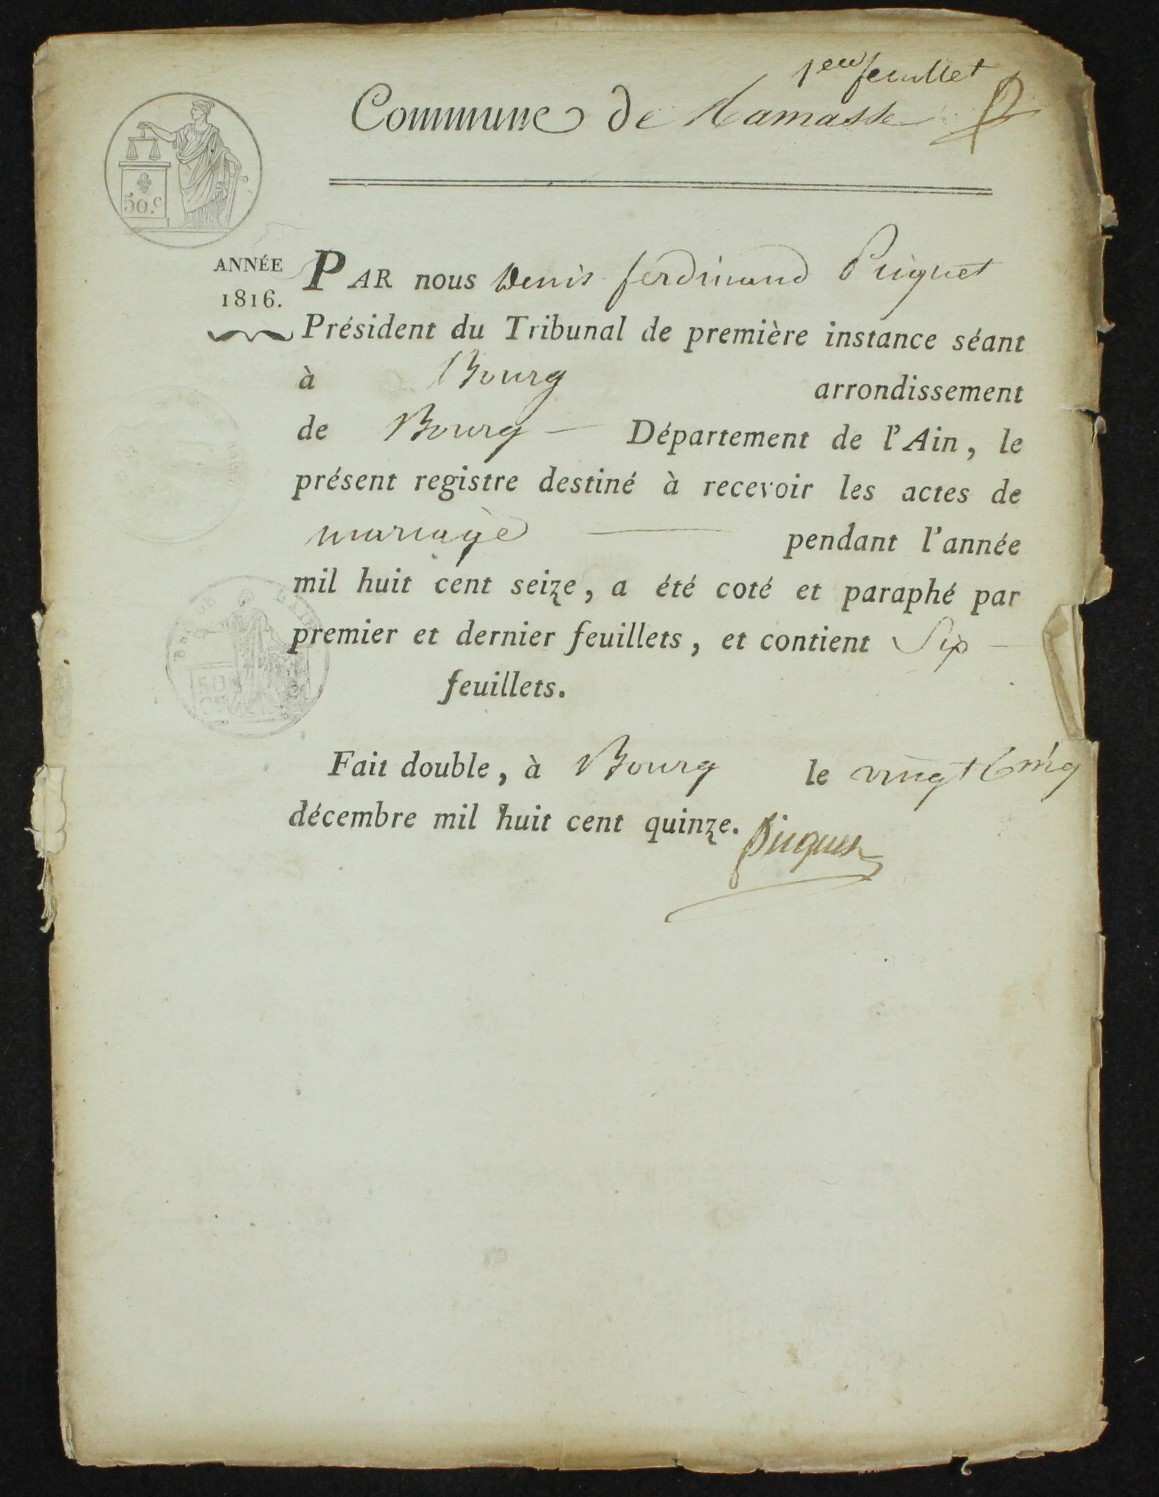 1er feuillet
Commune de Ramasse
50.c
ANNÉE
1816.
PAR nous Denis ferdinand Piquet
Président du Tribunal de première instance séant
à Bourg arrondissement
de Bourg — Département de l'Ain, le
présent registre destiné à recevoir les actes de
mariage — pendant l'année
mil huit cent seize, a été coté et paraphé par
premier et dernier feuillets, et contient Six —
feuillets.
Fait double, à Bourg le vingt Cinq
décembre mil huit cent quinze.
Piquet